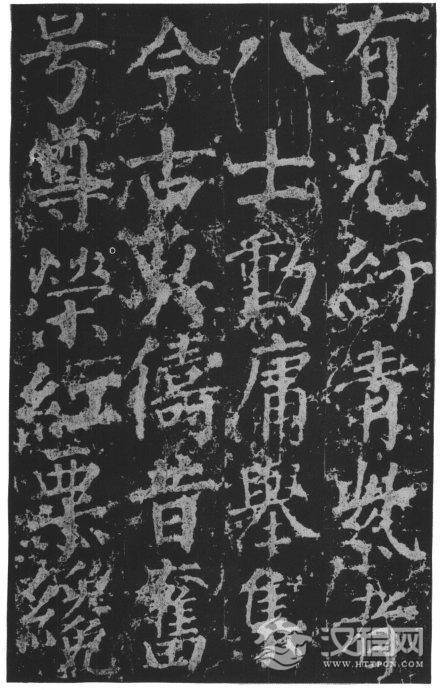 有光紆青紫
八士勳庸舉
今古儔昔奮
号尊榮紅粟
汉程网
WWW.HTTPCN.COM